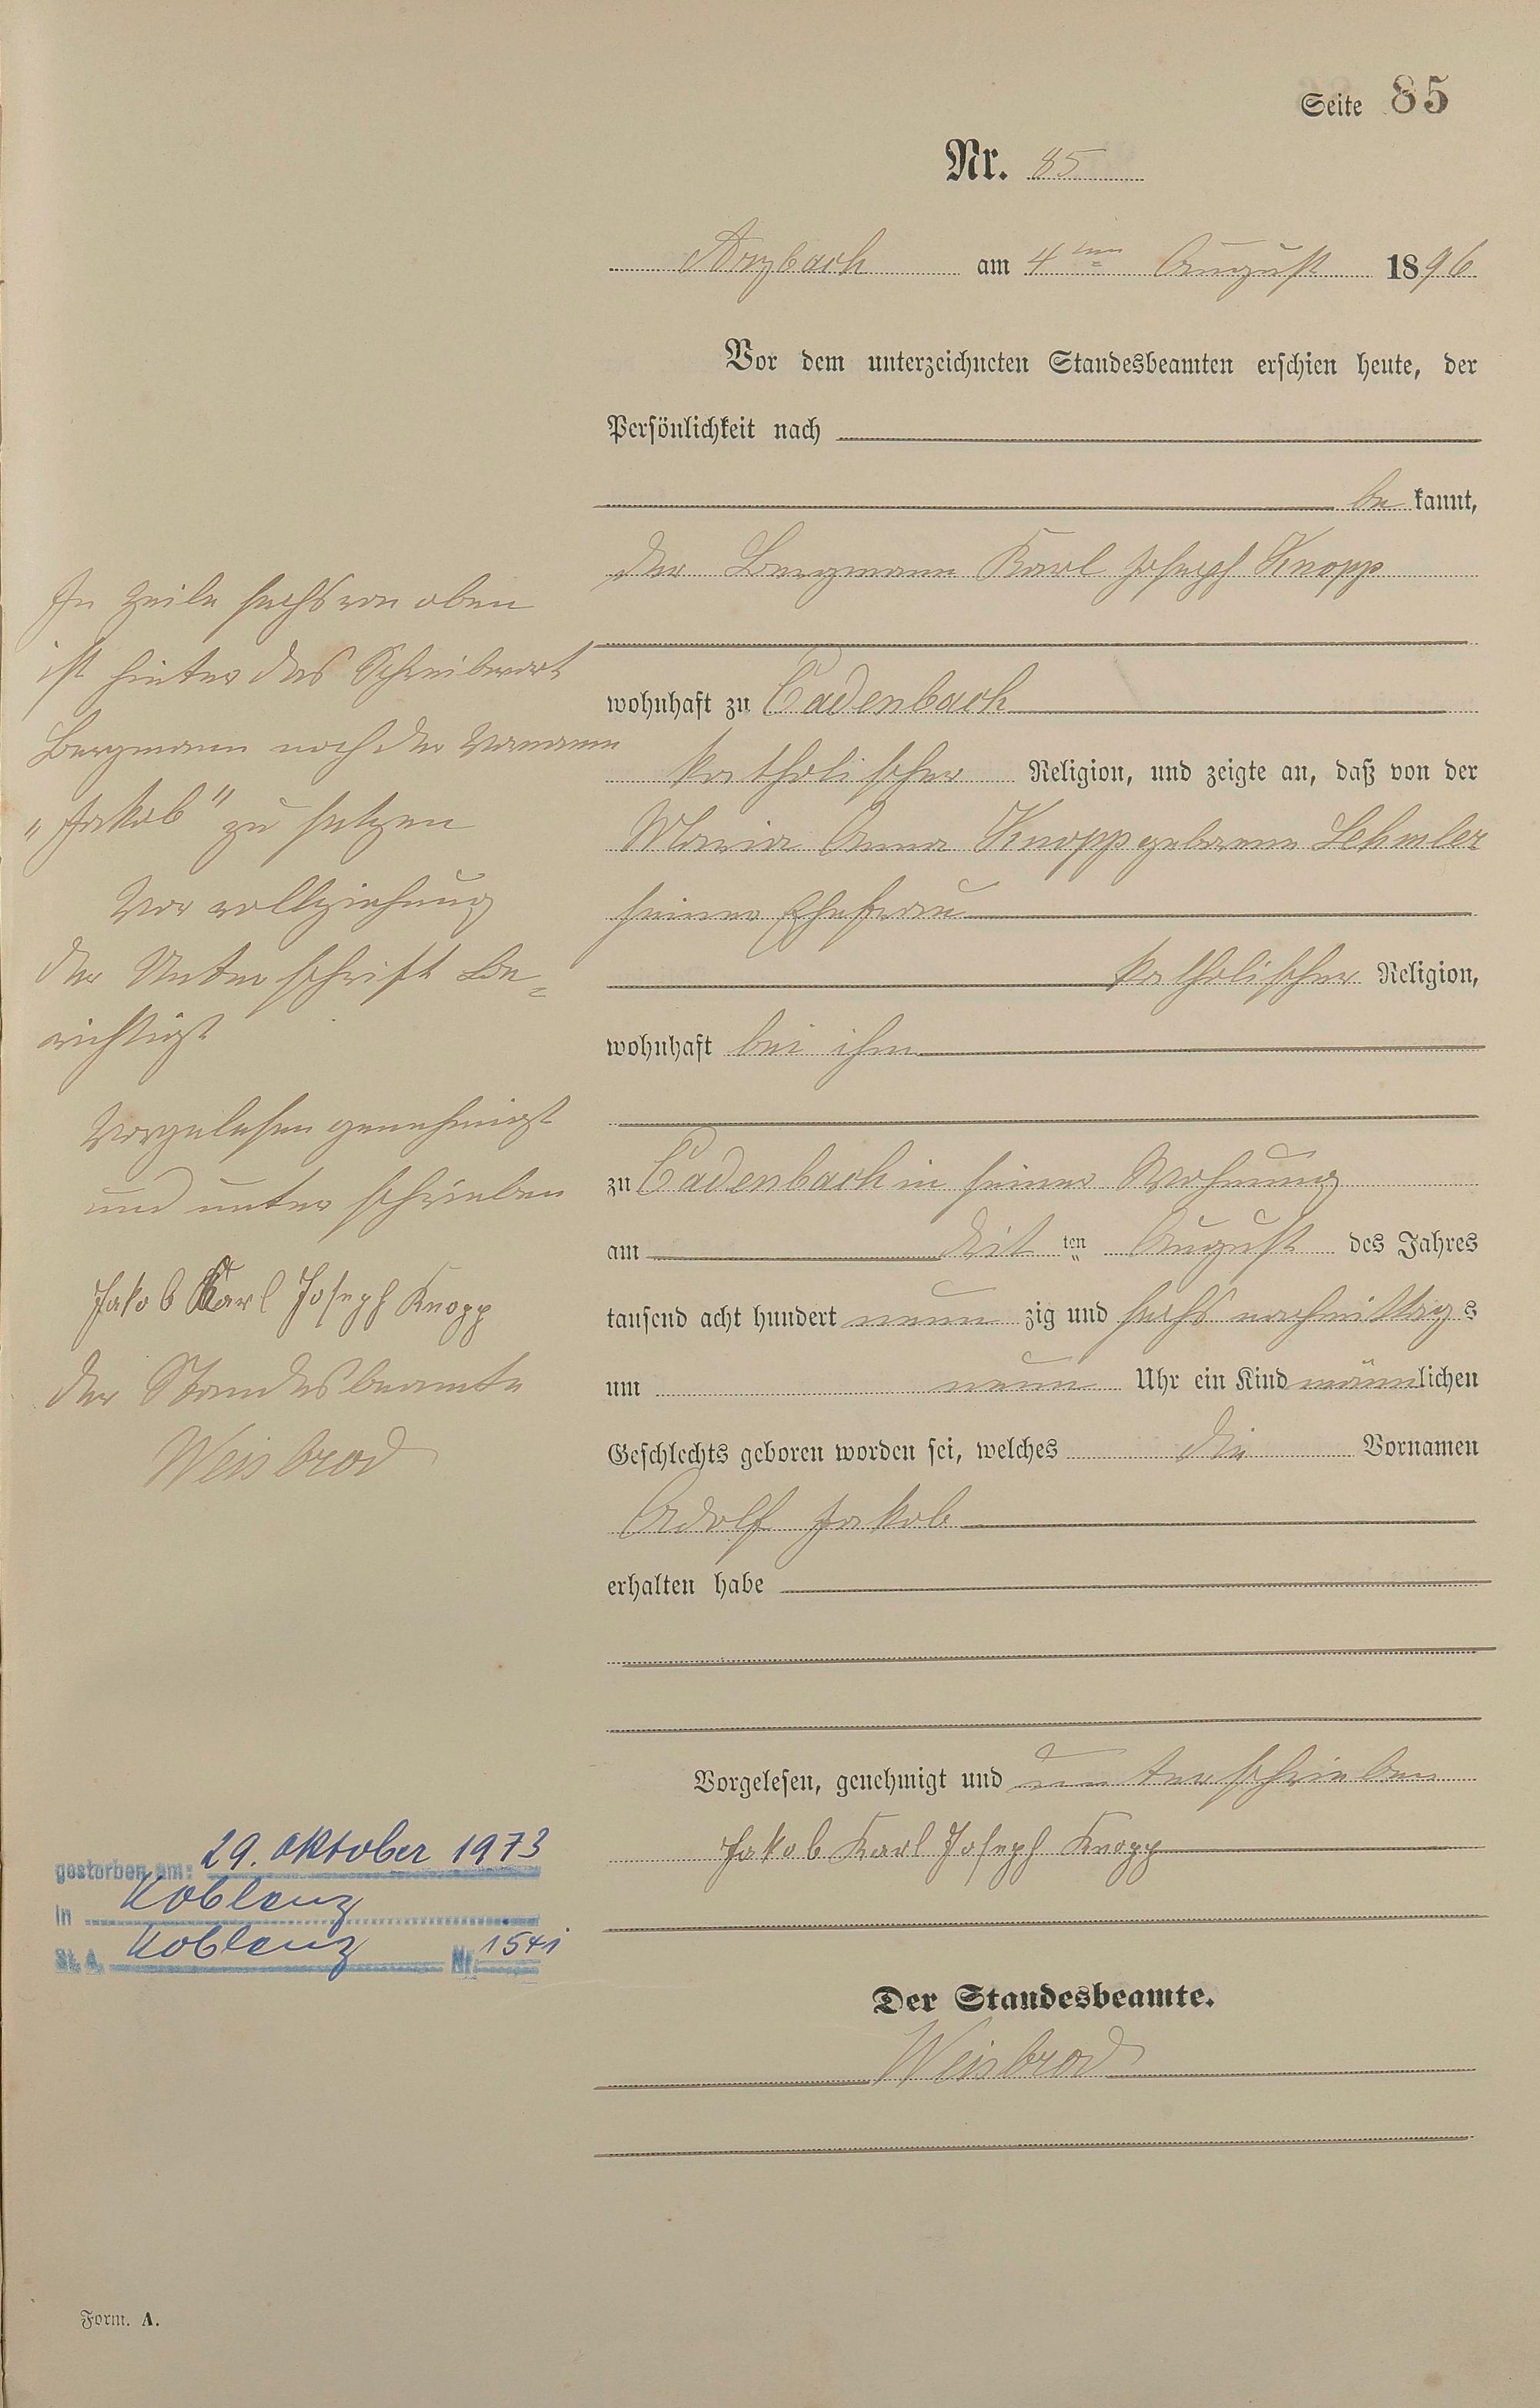 Seite 85
Nr. 85
Arzbach am 4ten August 1896
Vor dem unterzeichneten Standesbeamten erschien heute, der
Persönlichkeit nach
be kannt,
der Bergmann Karl Joseph Knopp
wohnhaft zu Cadenbach
katholischer Religion, und zeigte an, daß von der
Maria Anna Knopp geborene Lehmler
seiner Ehefrau
katholischer Religion,
wohnhaft bei ihm
zu Cadenbach in seiner Wohnung
am ten August des Jahres
tausend acht hundert neun zig und sechs nachmittags
um neun Uhr ein Kind männlichen
Geschlechts geboren worden sei, welches die Vornamen
Adolf Jakob
erhalten habe
Vorgelesen, genehmigt und unterschrieben
Jakob Karl Joseph Knopp
Der Standesbeamte.
Weisbrod
In Zeile sechs von oben
ist hinter das Schreibwort
Bergmann noch der Vorname
„Jakob" zu setzen
Vor vollziehung
der Unterschrift be=
richtigt
Vorgelesen genehmigt
und unterschrieben
Jakob Karl Joseph Knopp
der Standesbeamte
Weisbrod
gestorben am: 29. Oktober 1973
in Koblenz
St. A. Koblenz Nr. 1541
Form. A.